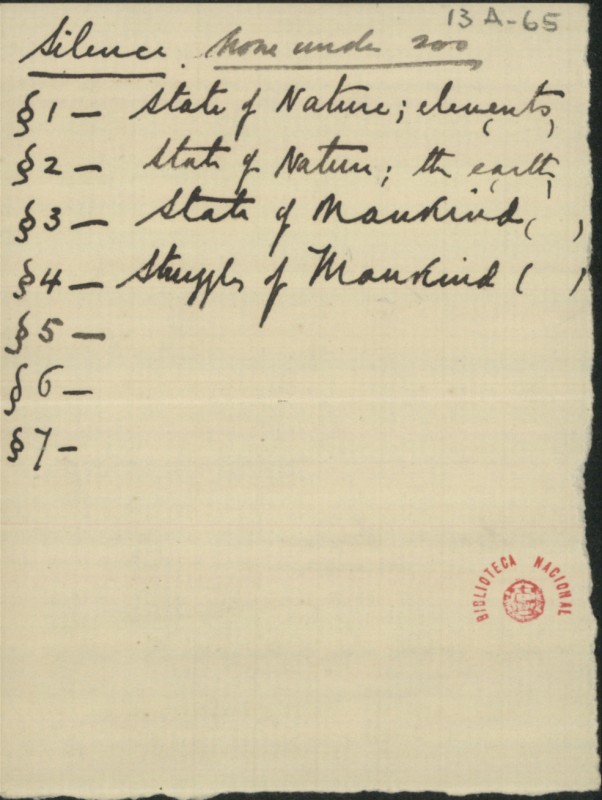 13 A-65
Silence. None under 200
§1 — State of Nature; elements ( )
§2 — State of Nature; the earth ( )
§3 — State of Mankind ( )
§4 — Struggles of Mankind ( )
§5 —
§6 —
§7 -
BIBLIOTECA NACIONAL